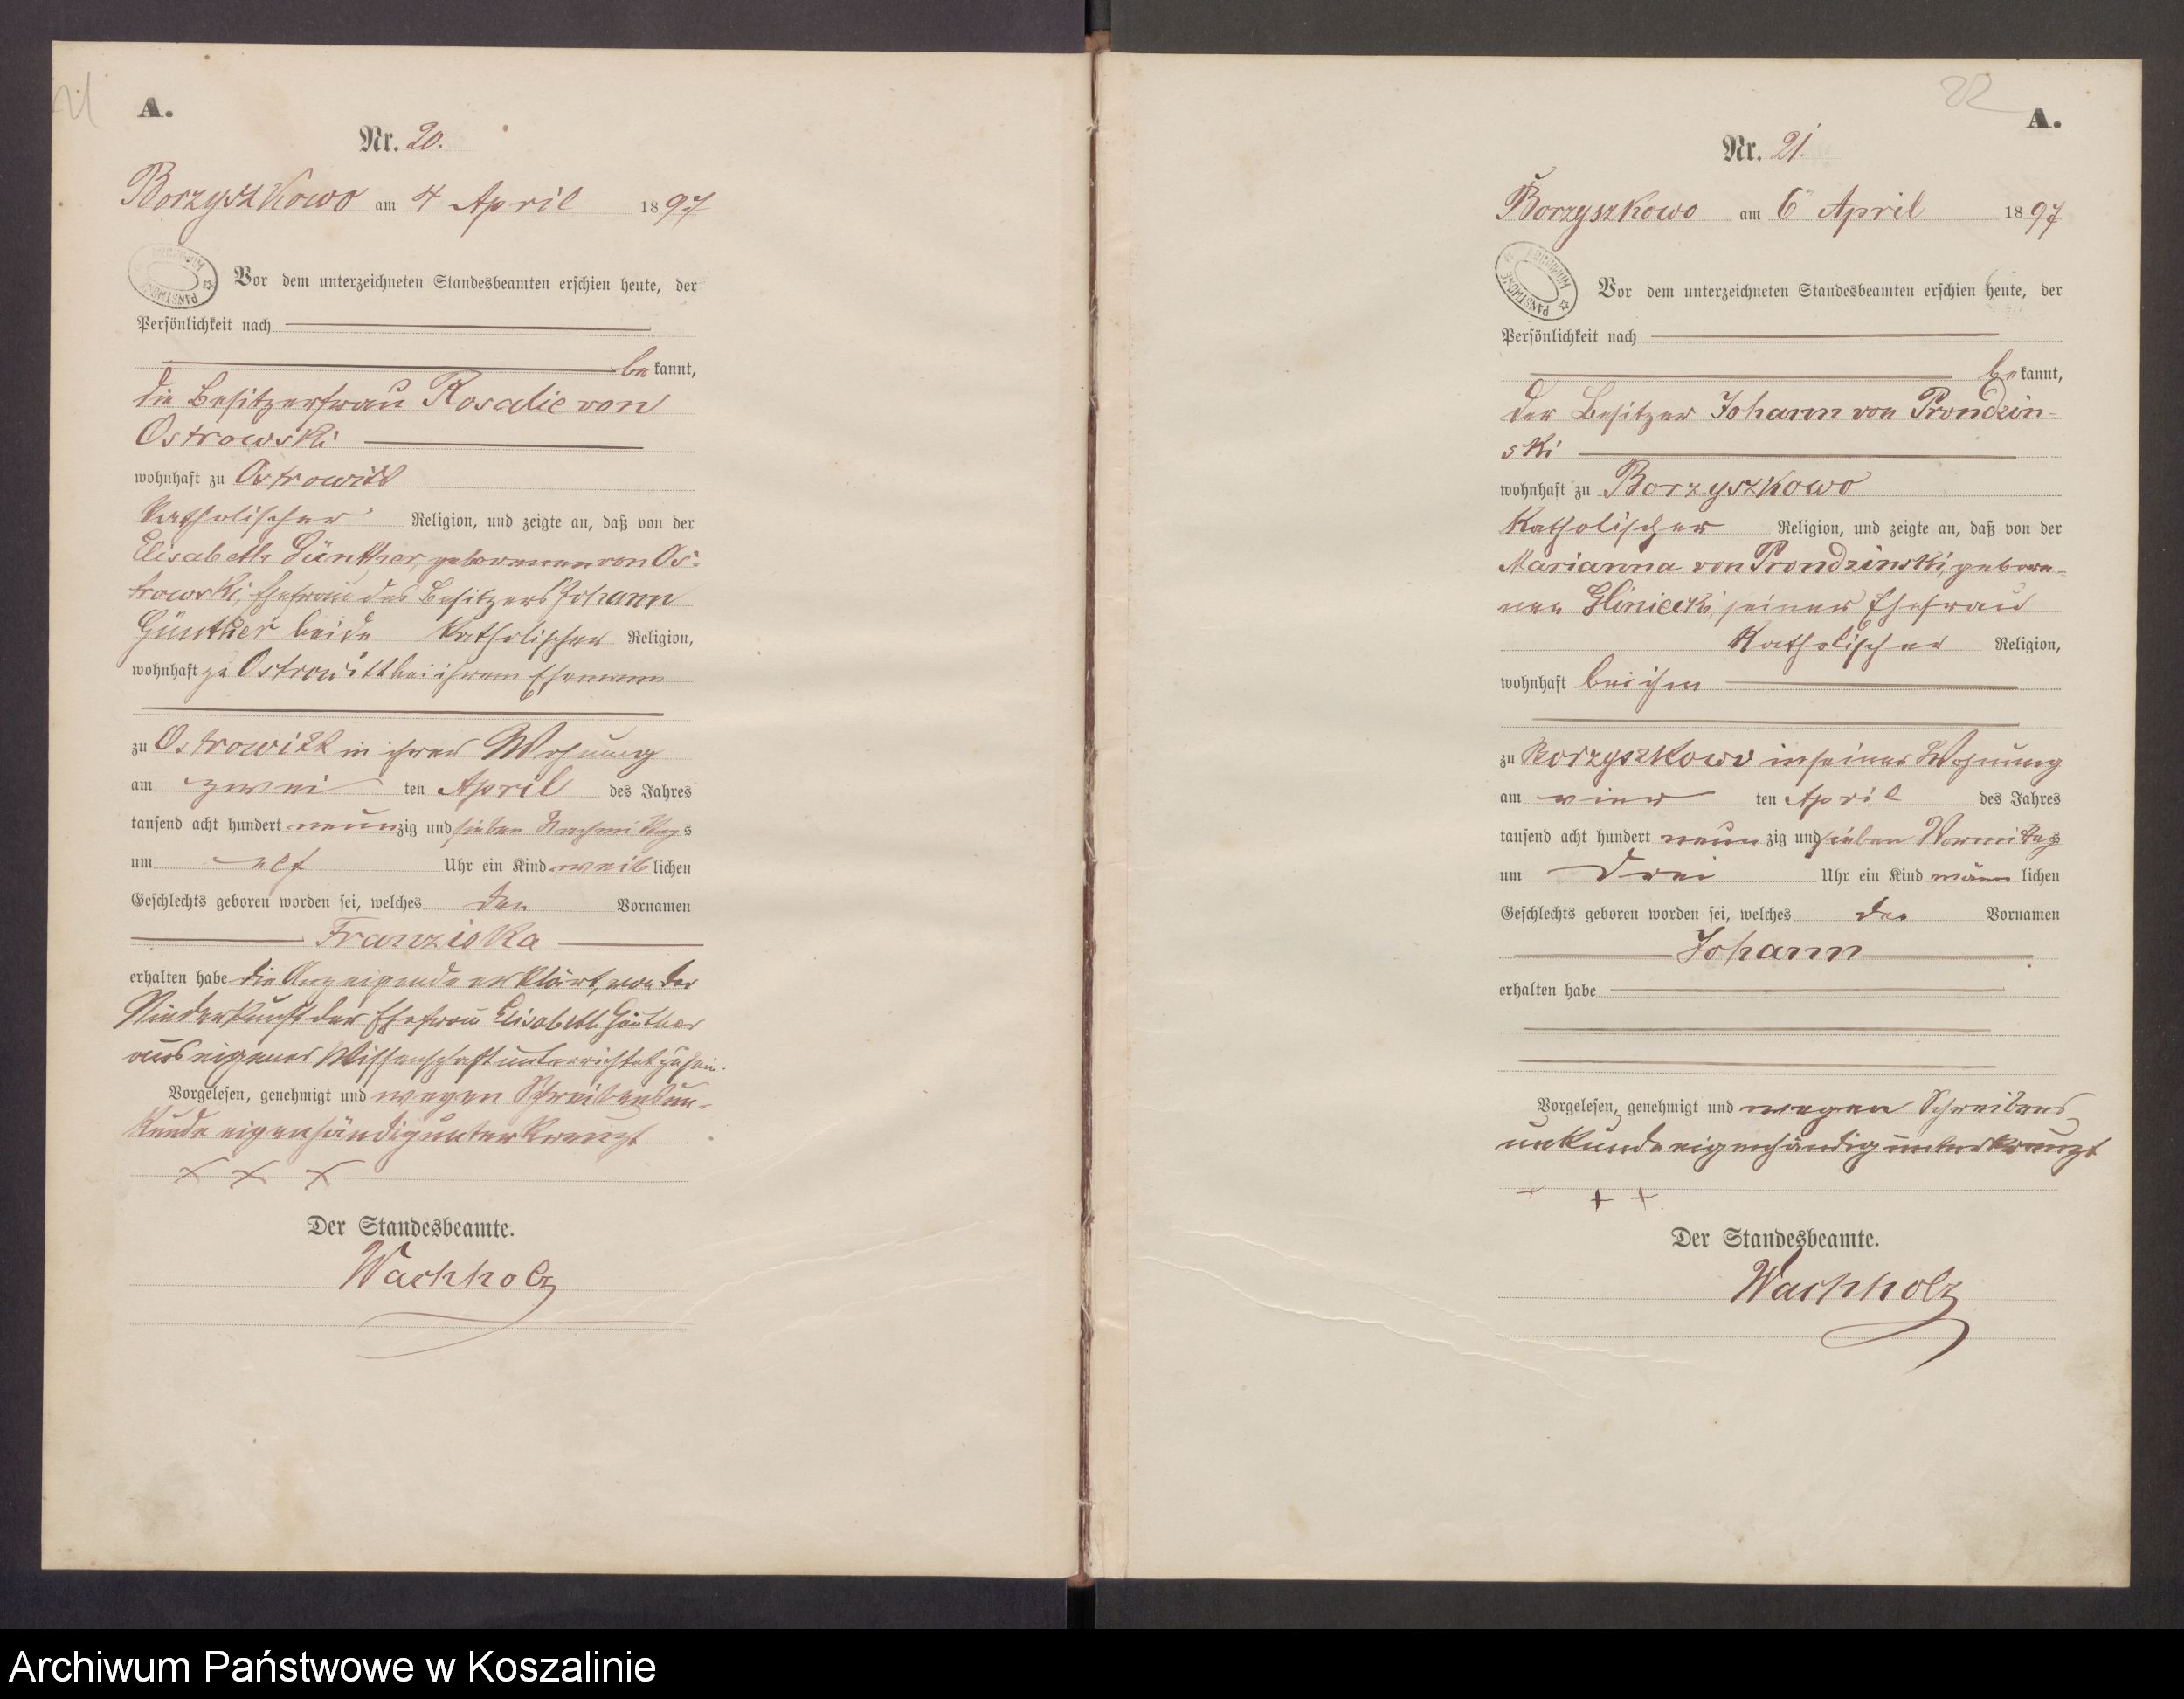 21
A.
Nr. 20.
Borzyszkowo am 4 April 1897
Vor dem unterzeichneten Standesbeamten erschien heute, der
Persönlichkeit nach
bekannt,
die Besitzerfrau Rosalie von
Ostrowski
wohnhaft zu Ostrowitt
katholischer Religion, und zeigte an, daß von der
Elisabeth Günther, geborenen von Os-
trowski, Ehefrau des Besitzers Johann
Günther beide katholischer Religion,
wohnhaft zu Ostrowitt bei ihrem Ehemann
zu Ostrowitt in ihrer Wohnung
am zwei ten April des Jahres
tausend acht hundert neunzig und sieben Nachmittags
um elf Uhr ein Kind weiblichen
Geschlechts geboren worden sei, welches den Vornamen
Franziska
erhalten habe die Anzeigende erklärt, von der
Niederkunft der Ehefrau Elisabeth Günther
aus eigener Wissenschaft unterrichtet zu sein.
Vorgelesen, genehmigt und wegen Schreibensun-
kunde eigenhändig unterkreuzt
+ + +
Der Standesbeamte.
Wachholz
22
A.
Nr. 21.
Borzyszkowo am 6 April 1897
ARCHIWUM PAŃSTWOWE
Vor dem unterzeichneten Standesbeamten erschien heute, der
Persönlichkeit nach
bekannt,
der Besitzer Johann von Prondzin-
ski
wohnhaft zu Borzyszkowo
katholischer Religion, und zeigte an, daß von der
Marianna von Prondzinski, gebore-
nen Gliniecki, seiner Ehefrau
katholischer Religion,
wohnhaft bei ihm
zu Borzyszkowo in seiner Wohnung
am vier ten April des Jahres
tausend acht hundert neunzig und sieben Vormittags
um drei Uhr ein Kind männlichen
Geschlechts geboren worden sei, welches den Vornamen
Johann
erhalten habe
Vorgelesen, genehmigt und wegen Schreibens
unkunde eigenhändig unterkreuzt
+ + +
Der Standesbeamte.
Wachholz
Archiwum Państwowe w Koszalinie